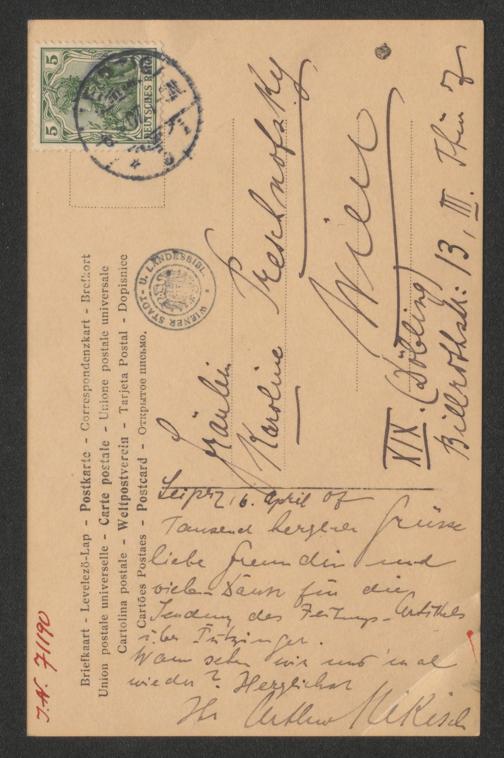 Briefkaart - Levelező-Lap - Postkarte - Correspondenzkart - Brefkort
Union postale universelle - Carte postale - Unione postale universale
Cartolina postale - Weltpostverein - Tarjeta Postal - Dopisnice
Cartões Postaes - Postcard - Открытое письмо.
5 DEUTSCHES REICH 5
WIENER STADT- U. LANDESBIBL.
Fräulein
Karoline Preschnofsky
Wien
XIX. (Döbling)
Billrothstr: 13, III. Thür 7
Leipzig 6. April 07
Tausend herzliche Grüsse
liebe Freundin und
vielen Dank für die
Sendung des Zeitungs-Artikels
über
Wann sehen wir uns 'mal
wieder? Herzlichst
Ihr Arthur Nikisch
J.N. 71190